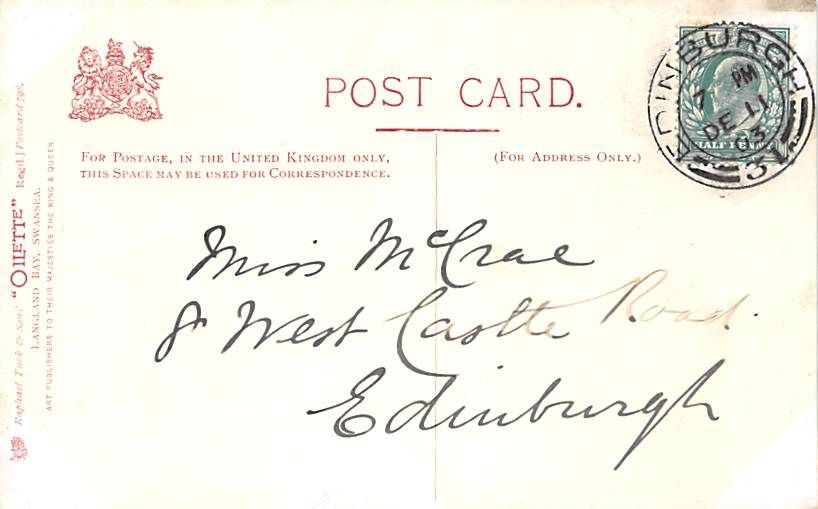 POST CARD.
FOR POSTAGE, IN THE UNITED KINGDOM ONLY,
THIS SPACE MAY BE USED FOR CORRESPONDENCE.
(FOR ADDRESS ONLY.)
EDINBURGH
7 PM
DE 11
03
31
HALF PENNY
Miss McCrae
8 West Castle Road.
Edinburgh
Raphael Tuck & Sons' "OILETTE" Regd.] Postcard 798.
LANGLAND BAY, SWANSEA.
ART PUBLISHERS TO THEIR MAJESTIES THE KING & QUEEN.